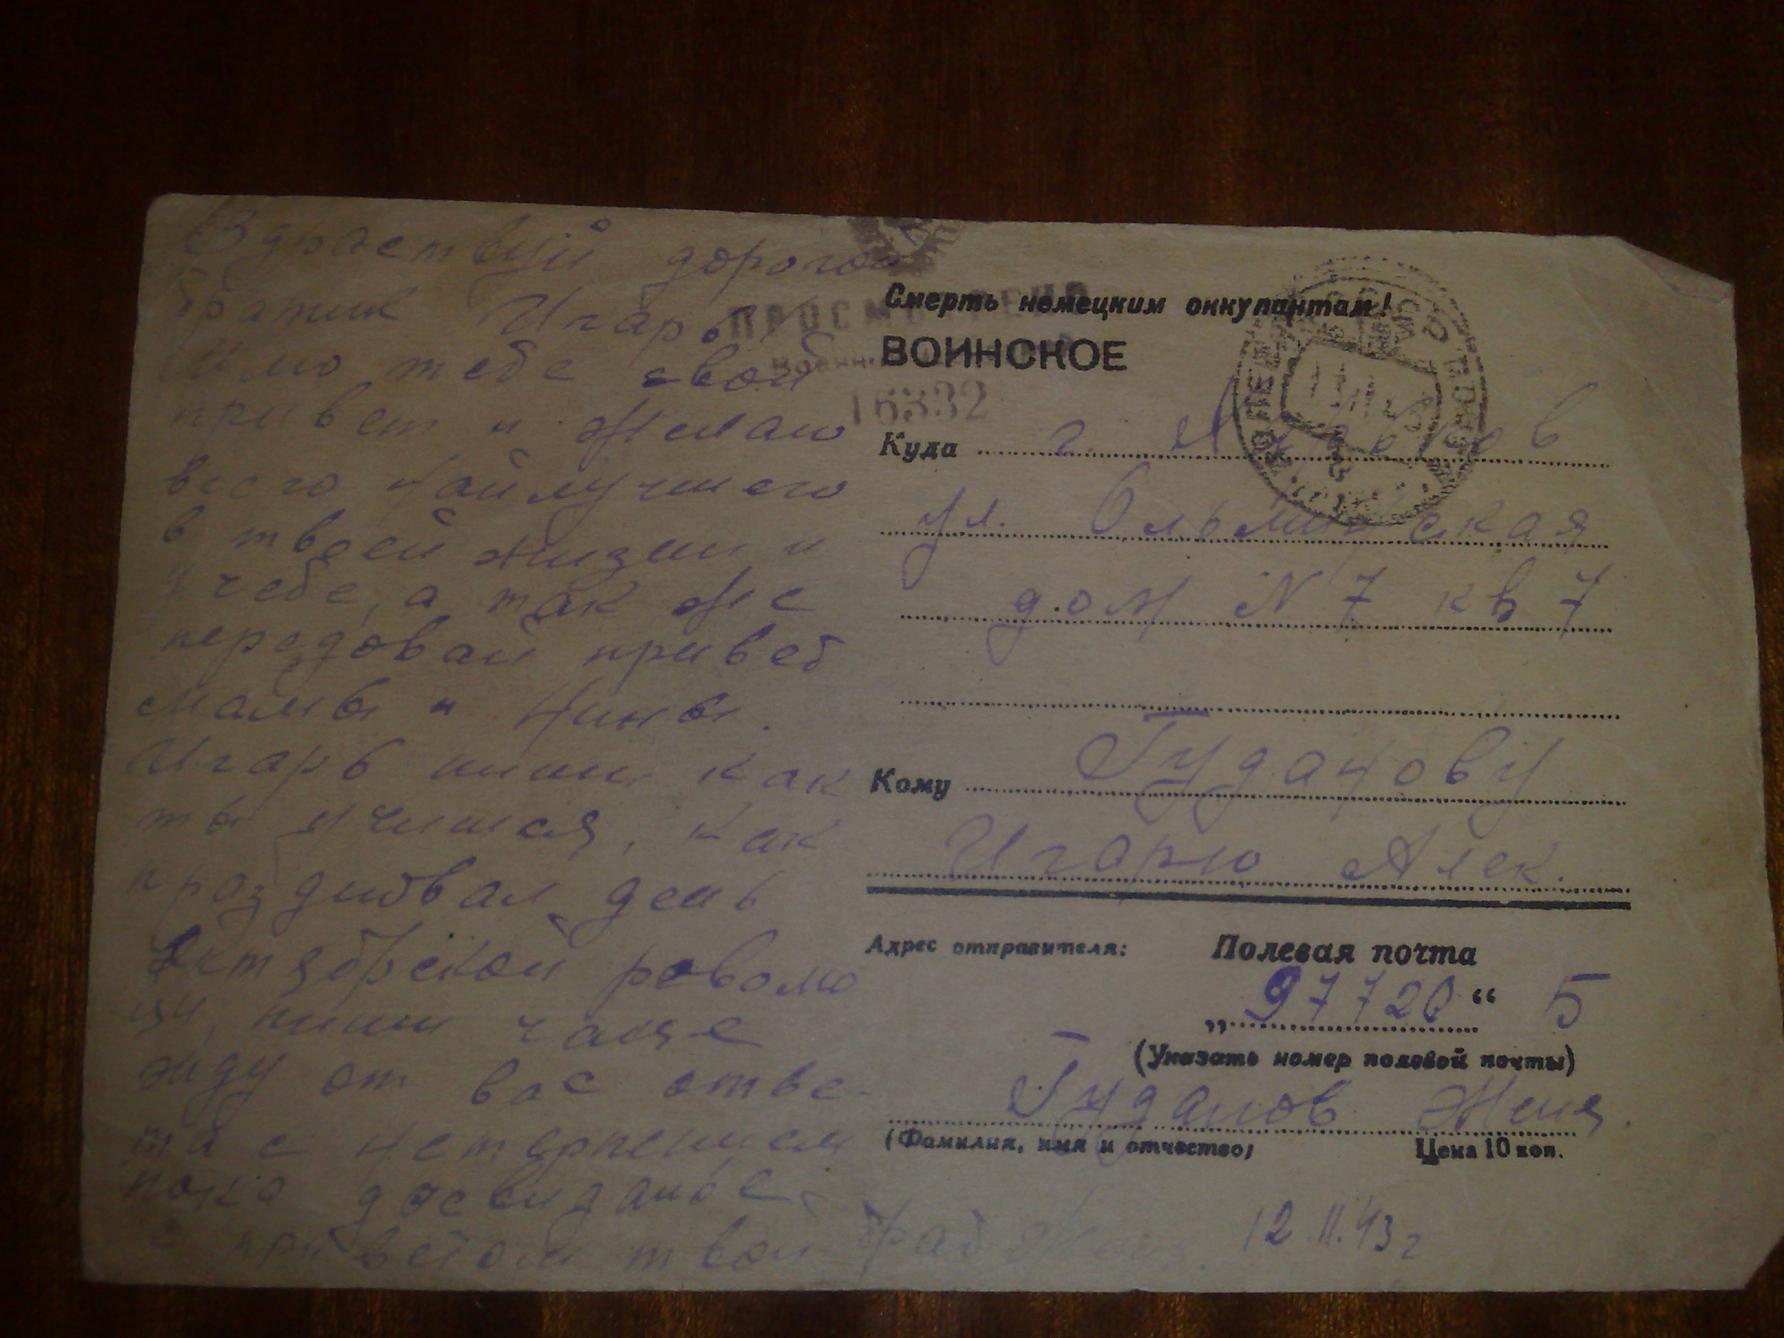 Здраствуй дорогой
братик Игарь
Шлю тебе свой
привет и желаю
всего найлучшего
в твоей жизни и
учебе, а так же
передовай привет
мамы и Нины.
Игарь пиши как
ты учишся, как
праздновал день
Октябрской револю
ци, пиши чаще
жду от вас отве-
та с нетерпением
пока досвидание
с приветом твой брат Женя. 12.11.43 г
ПРОСМОТРЕНО
16332
Смерть немецким оккупантам!
ВОИНСКОЕ
Куда г.
ул. Ольминская
дом N 7 кв 7
Кому Гуданову
Игарю Алек.
Адрес отправителя: Полевая почта
„97720“ Б
(Указать номер полевой почты)
Гуданов Женя.
(Фамилия, имя и отчество) Цена 10 коп.